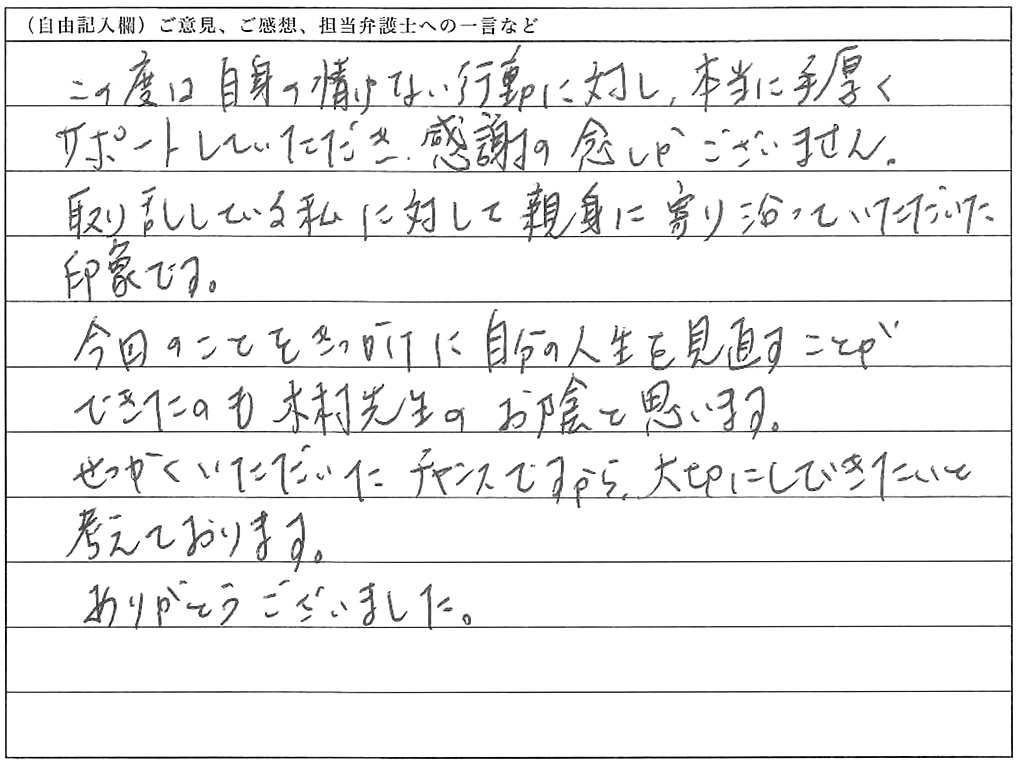 （自由記入欄）ご意見、ご感想、担当弁護士への一言など
この度は自身の情けない行動に対し、本当に手厚く
サポートしていただき、感謝の念しかございません。
取り乱している私に対して親身に寄り沿っていただいた
印象です。
今回のことをきっかけに自分の人生を見直すことが
できたのも木村先生のお陰と思います。
せっかくいただいたチャンスですから、大切にしていきたいと
考えております。
ありがとうございました。